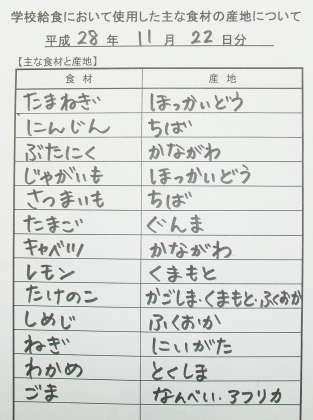 学校給食において使用した主な食材の産地について
平成 28 年 11 月 22 日分
【主な食材と産地】
食材 産地
たまねぎ ほっかいどう
にんじん ちば
ぶたにく かながわ
じゃがいも ほっかいどう
さつまいも ちば
たまご ぐんま
キャベツ かながわ
レモン くまもと
たけのこ かごしま・くまもと・ふくおか
しめじ ふくおか
ねぎ にいがた
わかめ とくしま
ごま なんべい・アフリカ